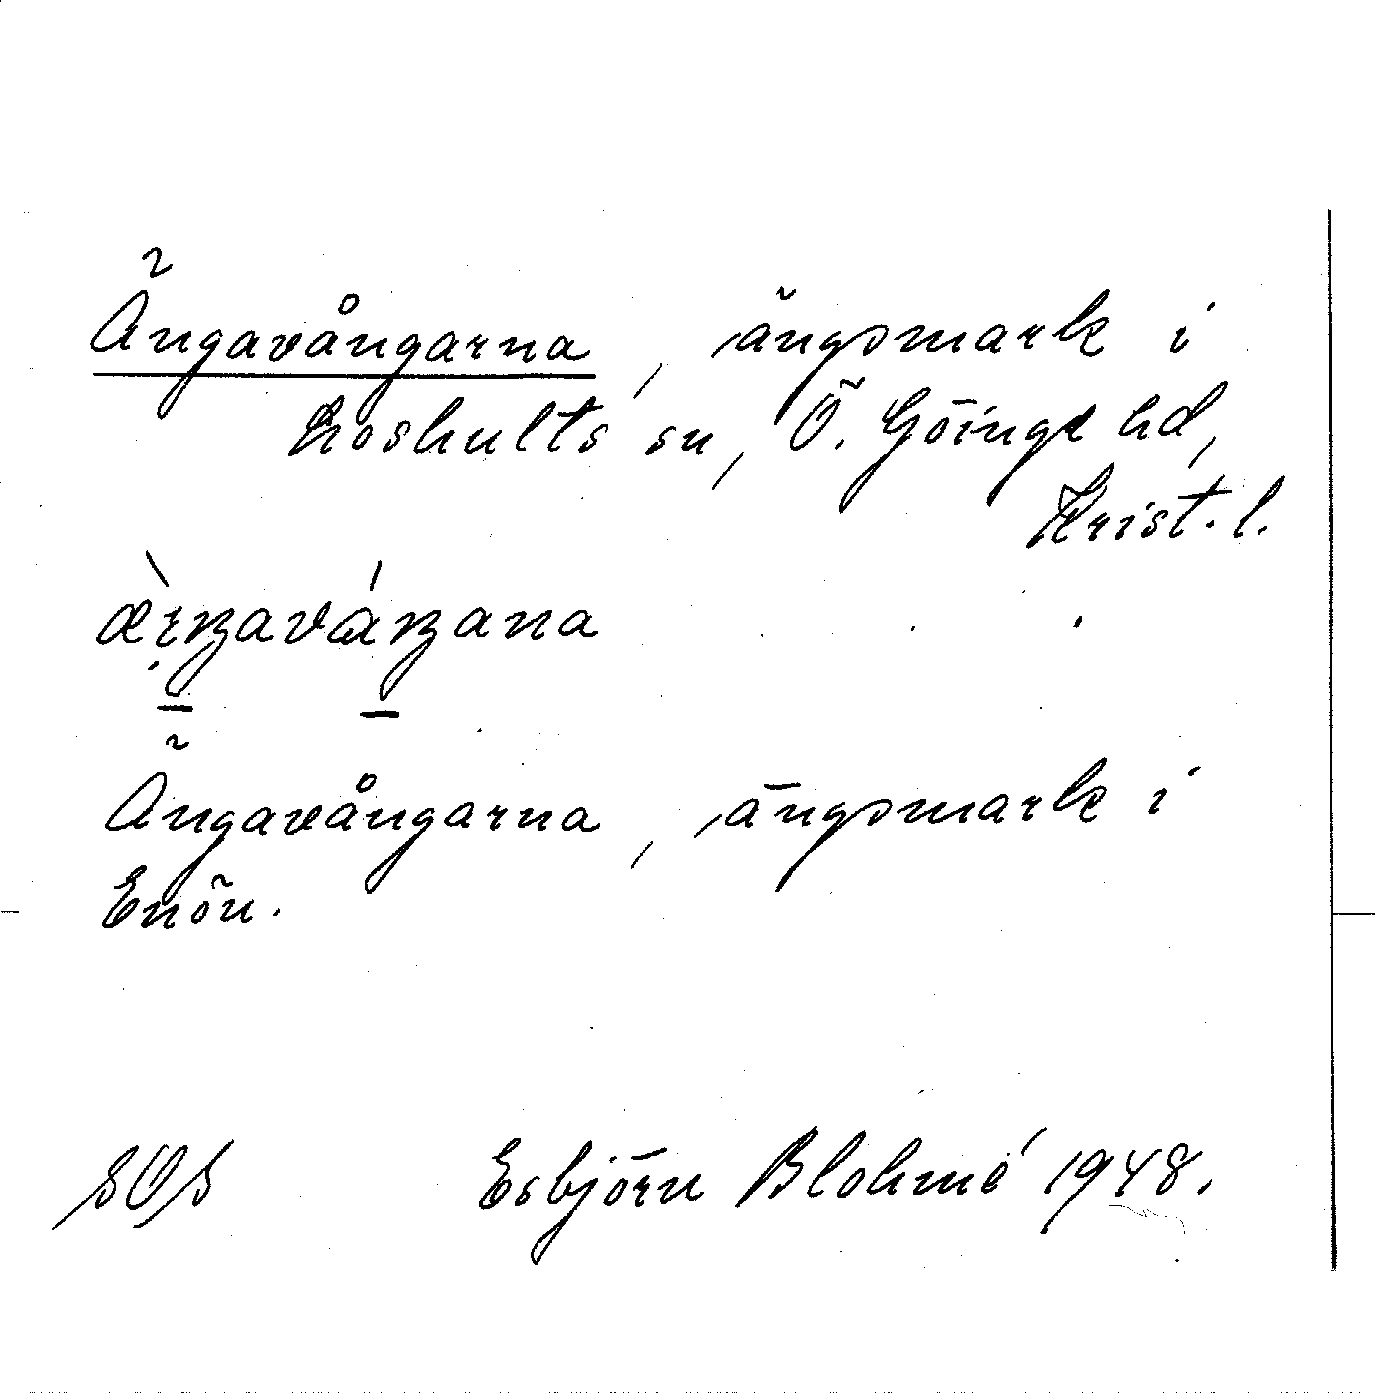 Ängavångarna, ängsmark i
Loshults sn, Ö. Göinge hd,
Krist. l.
Ängavångarna, ängsmark i
Enön.
SOS Esbjörn Blohmé 1948.